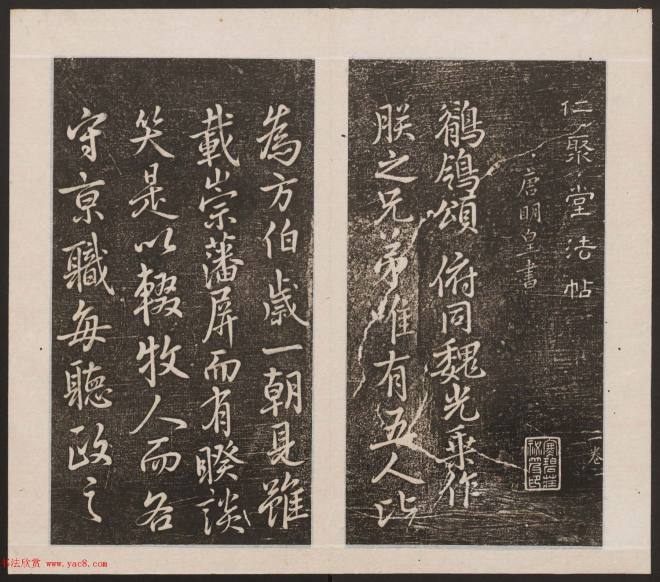 仁聚堂法帖
唐明皇書
一卷
鶺鴒頌 俯同魏光乘作
朕之兄弟唯有五人比
為方伯歲一朝見雖
載崇藩屏而有睽談
笑是以輟牧人而各
守京職每聽政之
书法欣赏 www.yac8.com